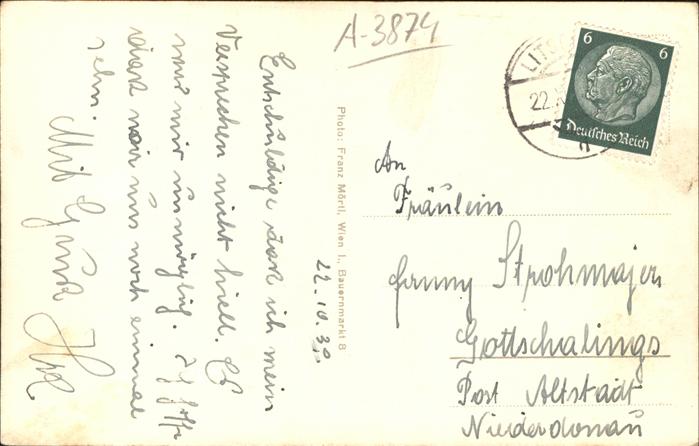 A-3874
22.10.39
Entschuldige daß ich mein
Versprechen nicht hielt. Es
war mir unmöglich. Ich hoffe
daß wir uns noch einmal
sehn.
Mit Gruß
Photo: Franz Mörtl, Wien I., Bauernmarkt 8
6 6
Deutsches Reich
22.X
An
Fräulein
Strohmajer
Gottschalings
Post Altstadt
Niederdonau